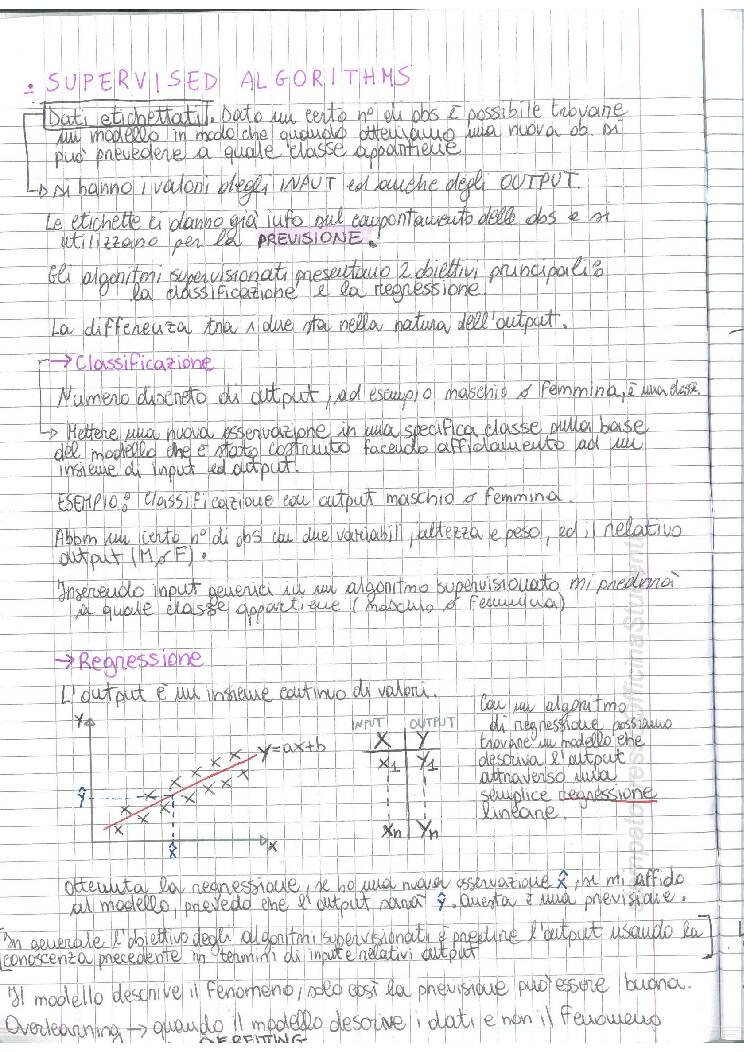 • SUPERVISED ALGORITHMS
Dati etichettati. Dato un certo n° di obs è possibile trovare
un modello in modo che quando otteniamo una nuova ob. si
può prevedere a quale classe appartiene
→ si hanno i valori degli INPUT ed anche degli OUTPUT.
Le etichette ci danno già info sul comportamento delle obs e si
utilizzano per la PREVISIONE.
Gli algoritmi supervisionati presentano 2 obiettivi principali:
la classificazione e la regressione.
La differenza tra i due sta nella natura dell'output.
→ Classificazione
Numero discreto di output, ad esempio maschio o femmina, è una classe.
→ Mettere una nuova osservazione in una specifica classe sulla base
del modello che è stato costruito facendo affidamento ad un
insieme di input ed output.
ESEMPIO: classificazione con output maschio o femmina.
Abbm un certo n° di obs con due variabili, altezza e peso, ed il relativo
output (M o F).
Inserendo input generici in un algoritmo supervisionato mi predirrà
a quale classe appartiene (maschio o femmina)
→ Regressione
L'output è un insieme continuo di valori.
Y
y=ax+b
ŷ
x̂
x
INPUT OUTPUT
X Y
x1 y1
xn yn
Con un algoritmo
di regressione possiamo
trovare un modello che
descriva l'output
attraverso una
semplice regressione
lineare.
ottenuta la regressione, se ho una nuova osservazione x̂, se mi affido
al modello, prevedo che l'output sarà ŷ. Questa è una previsione.
[In generale l'obiettivo degli algoritmi supervisionati è predire l'output usando la
conoscenza precedente in termini di input e relativi output]
Il modello descrive il fenomeno, solo così la previsione può essere buona.
Overlearning → quando il modello descrive i dati e non il fenomeno